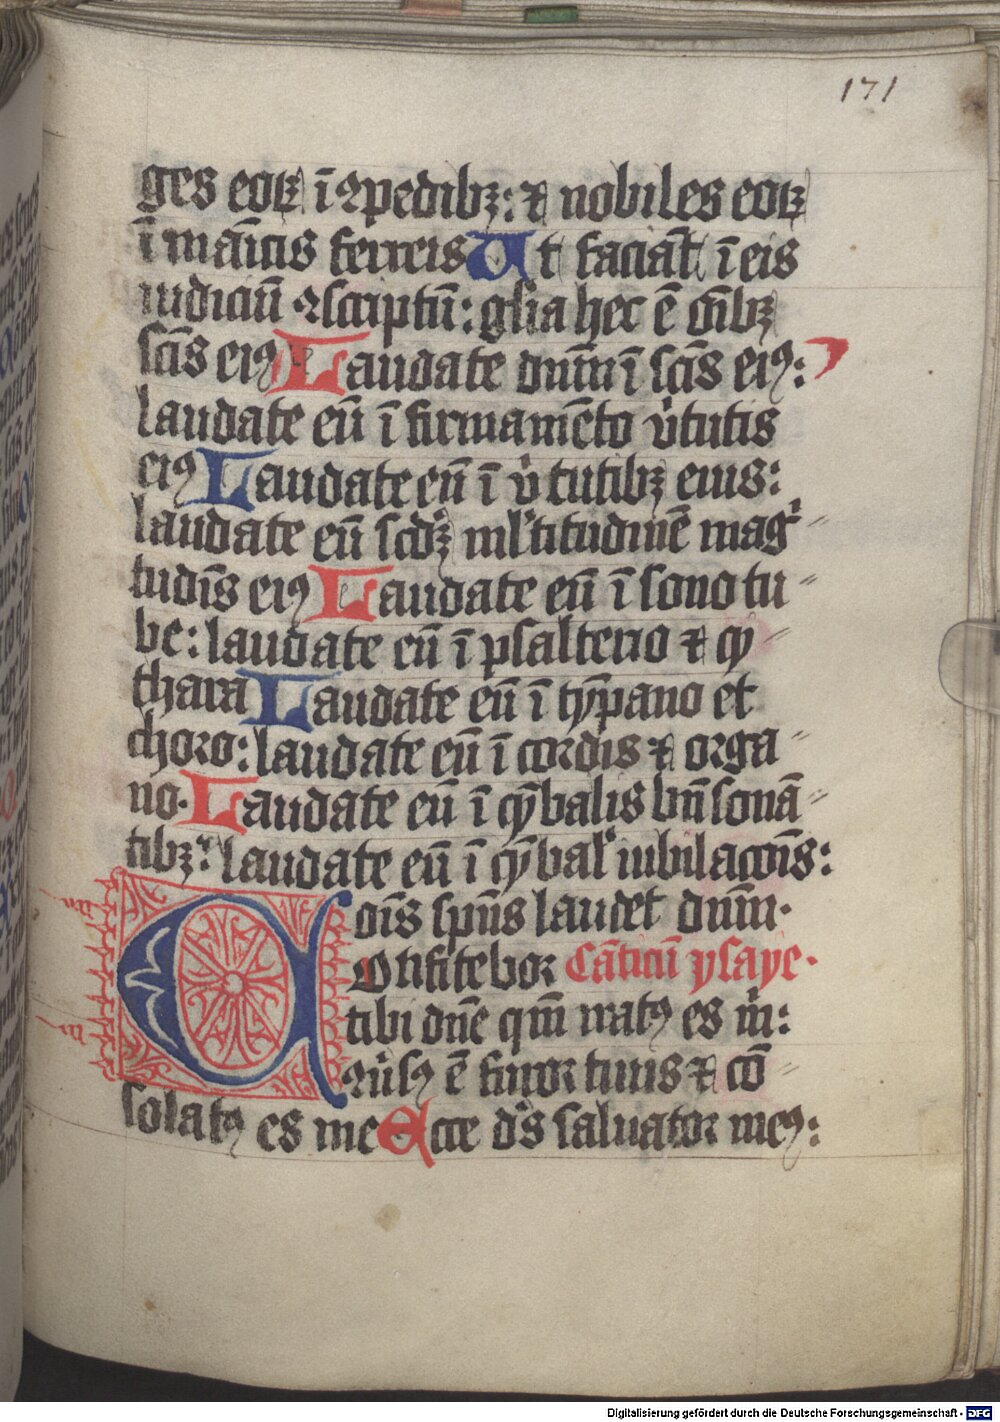 171
ges eoꝝ ī ꝯpedibꝫ: ⁊ nobiles eoꝝ
ī māicis ferreis Ut faciāt ī eis
iudiciū ꝯscriptū: gl'ia hec ē oīibꝫ
scīs eiꝰ Laudate dnm̄ ī scīs eiꝰ:
laudate eū ī firmamēto v̾tutis
eiꝰ Laudate eū ī v̾tutibꝫ eius:
laudate eū scdꝫ ml'titudinē mag
tudīs eiꝰ Laudate eū ī sono tu
be: laudate eū ī psalterio ⁊ cy
thara Laudate eū ī ty̅pano et
choro: laudate eū ī cordis ⁊ orga
no. Laudate eū ī cy̅balis bn̄ sonā
tibꝫ: laudate eū ī cy̅bal' iubilacoīs:
oīs spūs laudet dnm̄.
Confitebor Cāticū ysaye.
tibi dn̄e qm̄ iratꝰ es m̾:
ꝯv̾sꝰ ē furor tuus ⁊ cō
solatꝰ es me Ecce ds̄ saluator meꝰ:
Digitalisierung gefördert durch die Deutsche Forschungsgemeinschaft - DFG